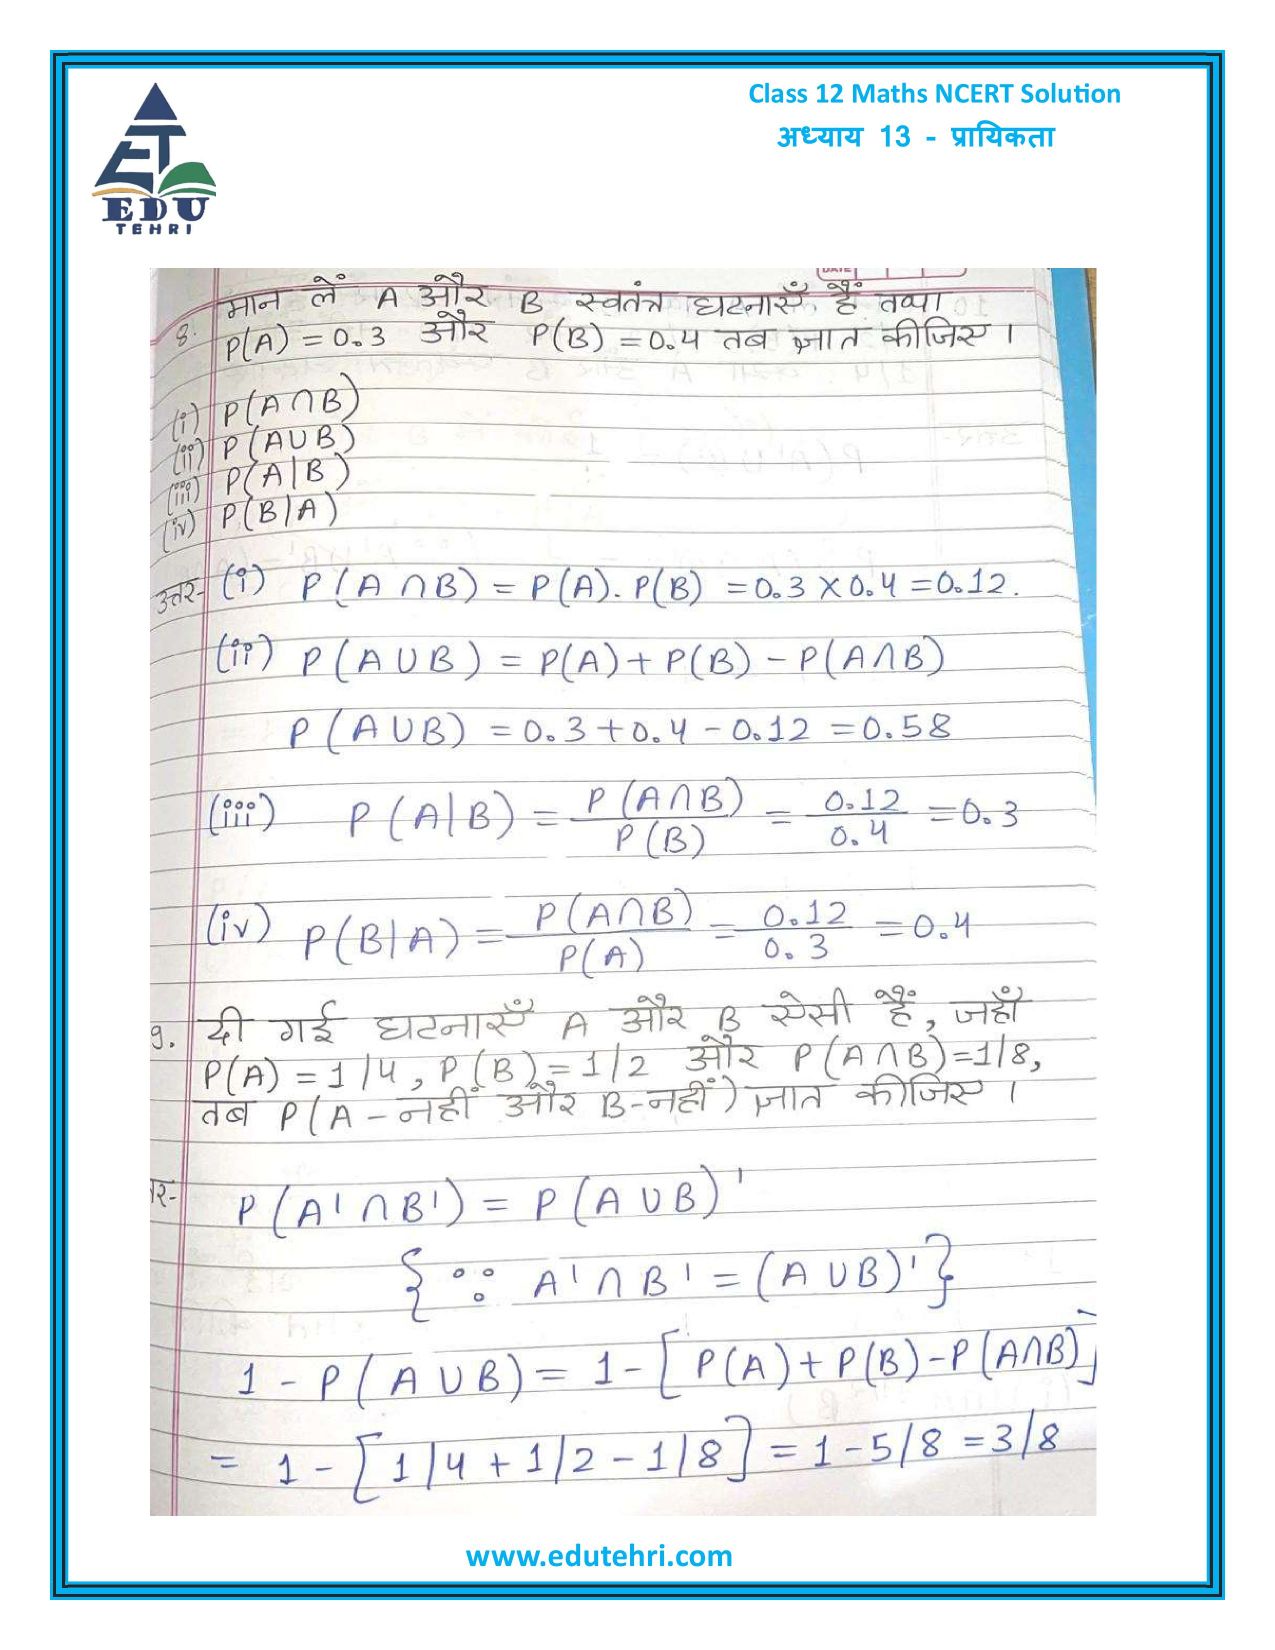 Class 12 Maths NCERT Solution
अध्याय 13 - प्रायिकता
EDU
TEHRI
DATE
8. मान लें A और B स्वतंत्र घटनाएँ हैं तथा
P(A) = 0.3 और P(B) = 0.4 तब ज्ञात कीजिए ।
(i) P(A∩B)
(ii) P(A∪B)
(iii) P(A|B)
(iv) P(B|A)
उत्तर- (i) P(A∩B) = P(A). P(B) = 0.3 × 0.4 = 0.12.
(ii) P(A∪B) = P(A) + P(B) - P(A∩B)
P(A∪B) = 0.3 + 0.4 - 0.12 = 0.58
(iii) P(A|B) = P(A∩B)/P(B) = 0.12/0.4 = 0.3
(iv) P(B|A) = P(A∩B)/P(A) = 0.12/0.3 = 0.4
9. दी गई घटनाएँ A और B ऐसी हैं, जहाँ
P(A) = 1/4, P(B) = 1/2 और P(A∩B) = 1/8,
तब P(A - नहीं और B-नहीं) ज्ञात कीजिए ।
त्तर- P(A'∩B') = P(A∪B)'
{∵ A'∩B' = (A∪B)'}
1 - P(A∪B) = 1 - [P(A) + P(B) - P(A∩B)]
= 1 - [1/4 + 1/2 - 1/8] = 1 - 5/8 = 3/8
www.edutehri.com